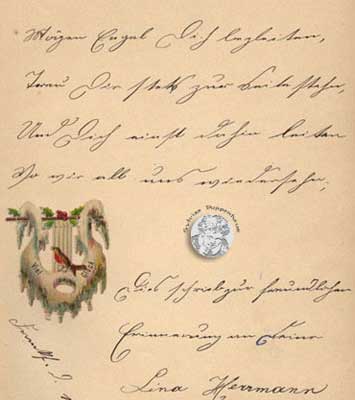 Mögen Engel Dich begleiten,
Treu Dir stets zur Seite stehn,
Und Dich einst dahin leiten
Wo wir all uns wiedersehn;
Dies schrieb zur freundlichen
Erinnerung an Deine
Lina Herrmann